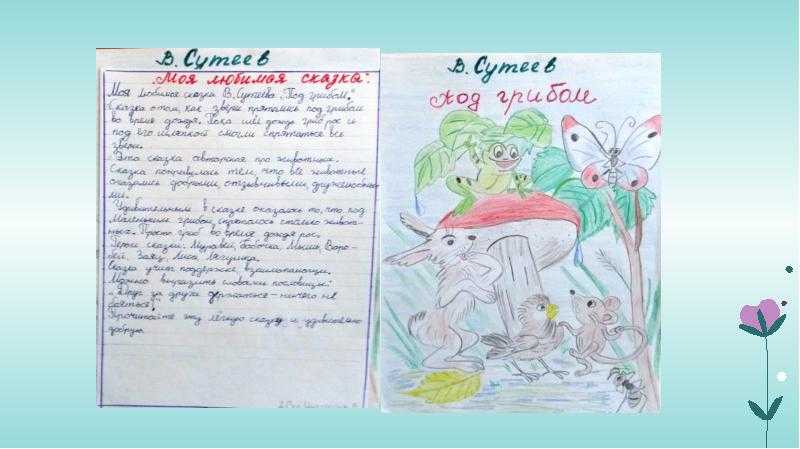 В. Сутеев
"Моя любимая сказка":
Моя любимая сказка В. Сутеева "Под грибом."
Сказка о том, как звери прятались под грибом
во время дождя. Пока шёл дождь гриб рос и
под его шляпкой смогли спрятаться все
звери.
Эта сказка авторская про животных.
Сказка понравилась тем, что все животные
оказались добрыми, отзывчивыми, дружелюбны-
ми.
Удивительным в сказке оказалось то, что под
маленьким грибом спряталось столько живот-
ных. Просто гриб во время дождя рос.
Герои сказки: Муравей, бабочка, Мышка, Воро-
бей, Заяц, Лиса, Лягушка.
Сказка учит поддержке, взаимопомощи.
Можно выразить словами пословицы:
"Друг за друга держаться – ничего не
бояться".
Прочитайте эту лёгкую сказку и удивительно
добрую.
В. Сутеев
Под грибом